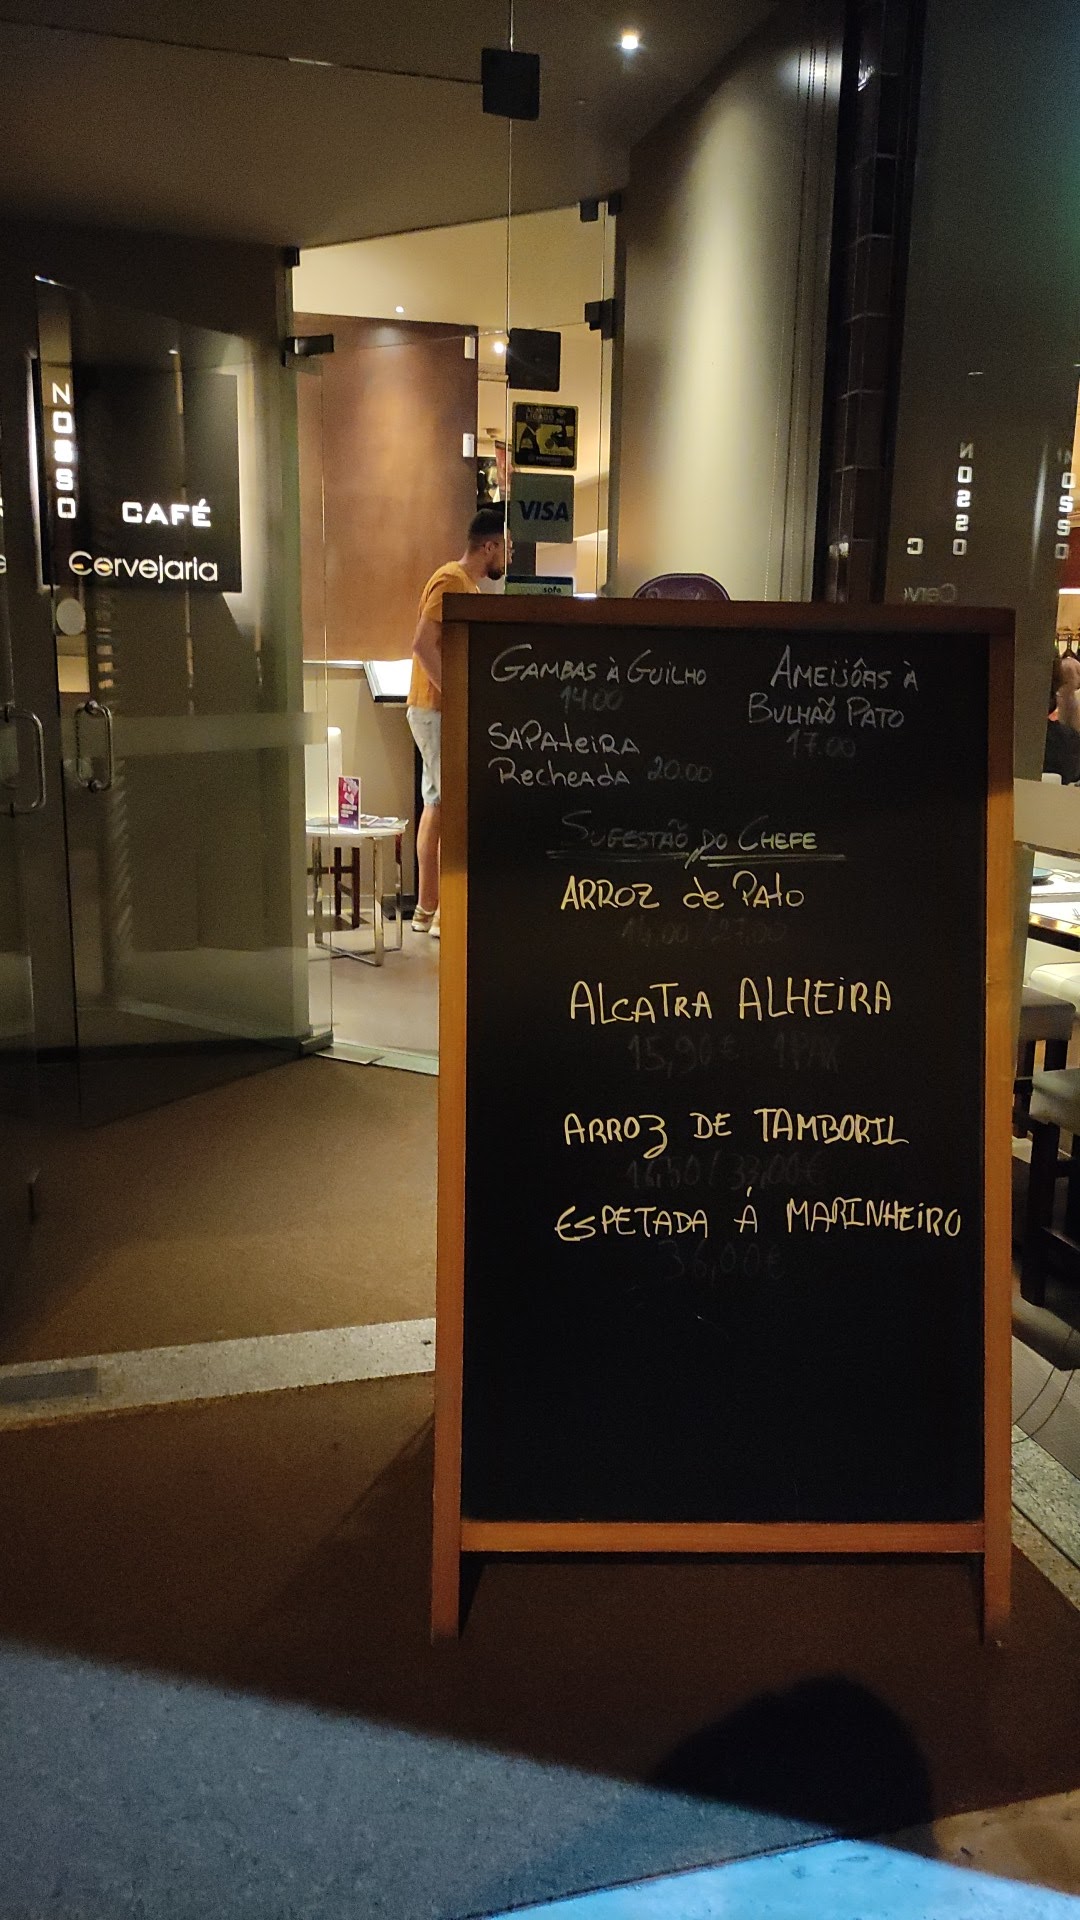 NOSSO
CAFÉ
Cervejaria
ALARME
LIGADO
VISA
GAMBAS À GUILHO
14.00
SAPAteiRA
Recheada 20.00
AMEIJÔAS À
BULHÃO PATO
17.00
SUGESTÃO DO CHEFE
ARROZ de Pato
14.00 / 27.00
ALCATRA ALHEIRA
15,90€ 1PAX
ARROZ DE TAMBORIL
16,50 / 33,00€
ESPETADA Á MARINHEIRO
36,00€
NOSSO
C
Cerve
NOSSO